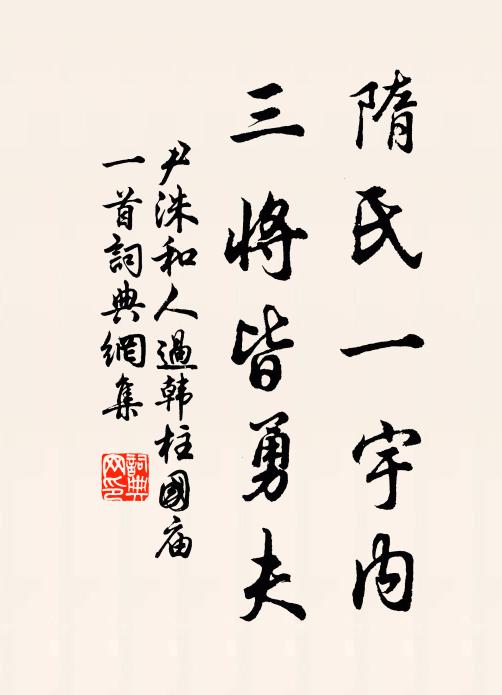 隋氏一宇内
三将皆勇夫
尹洙和人過韩柱國庙
一首詞典網集
詞典網印